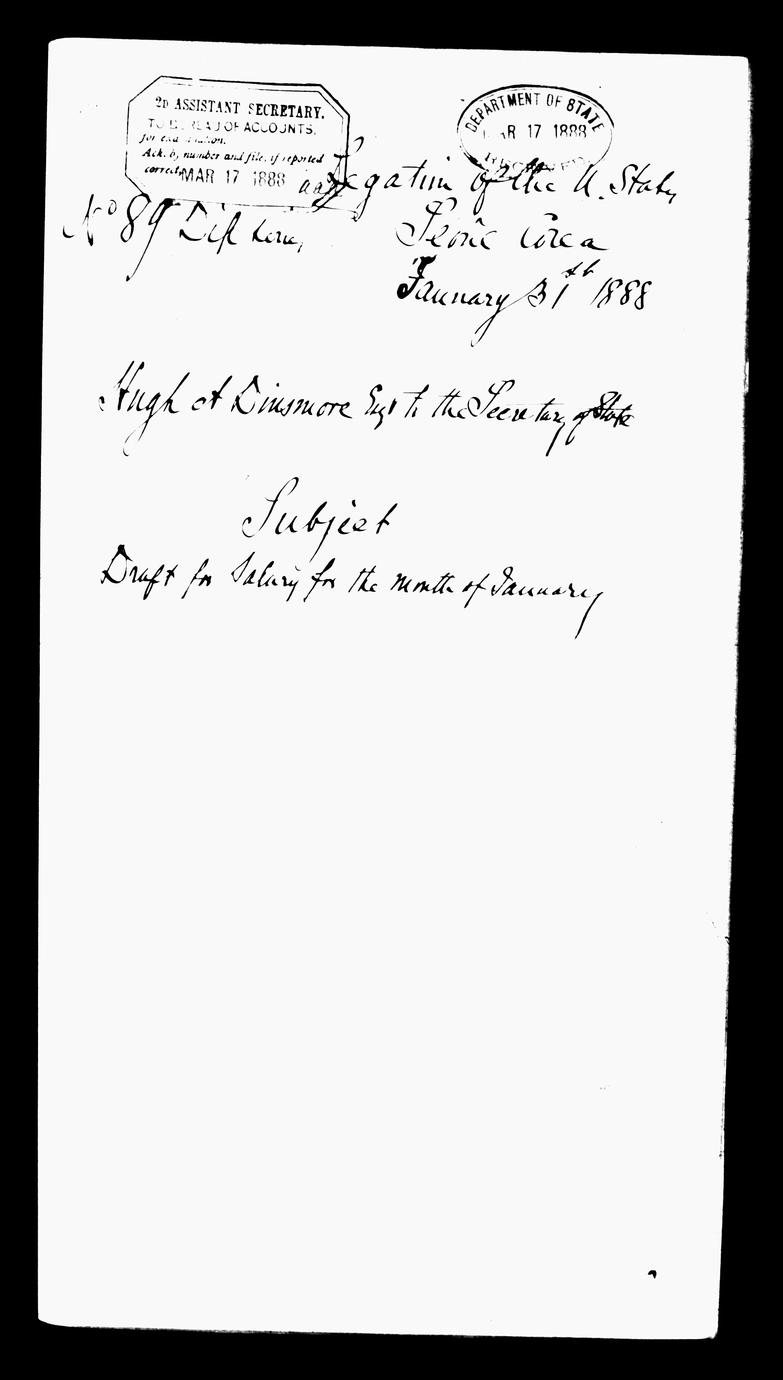 2D ASSISTANT SECRETARY.
TO BUREAU OF ACCOUNTS.
for examination.
Ack. by number and file, if reported
correct. MAR 17 1888
DEPARTMENT OF STATE
MAR 17 1888
RECEIVED
Legation of the U. States
No 89 Dip Series
Seoul Corea
January 31st 1888
Hugh A Dinsmore Esqr to the Secretary of State
Subject
Draft for Salary for the month of January